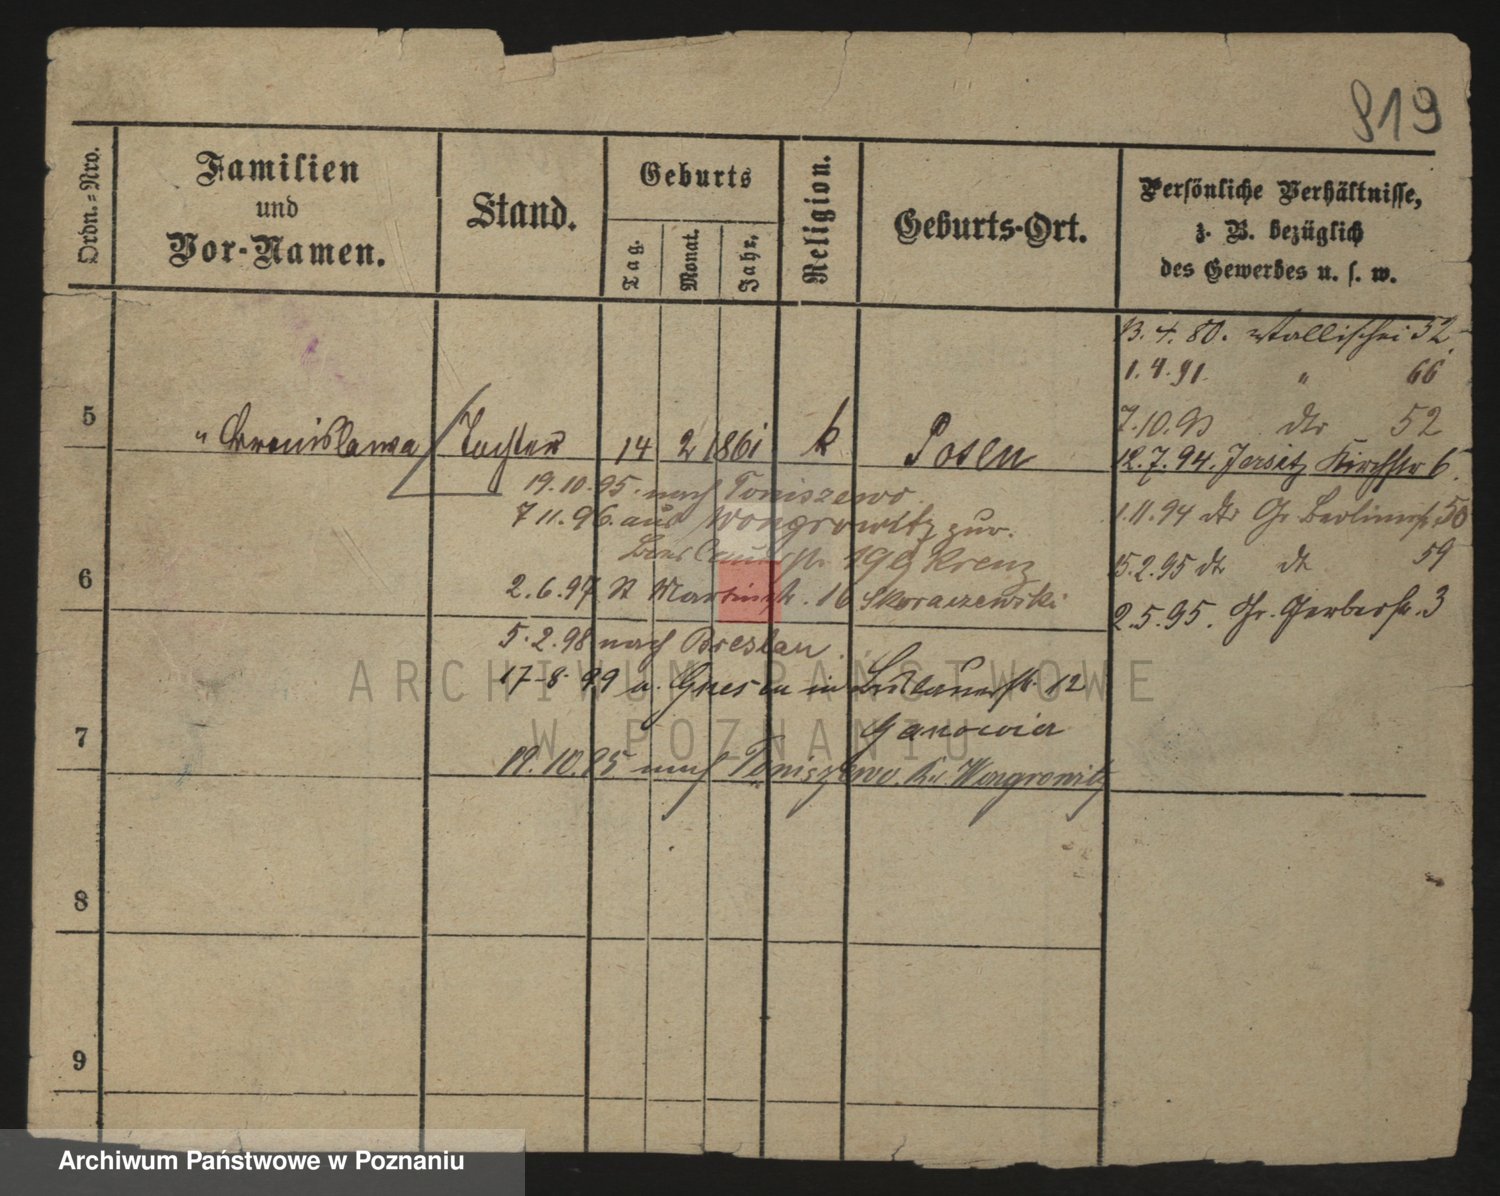 819
Ordn.-Nro.
Familien
und
Vor-Namen.
Stand.
Geburts
Tag.
Monat.
Jahr.
Religion.
Geburts-Ort.
Persönliche Verhältnisse,
z. B. bezüglich
des Gewerbes u. s. w.
13. 4. 80. Wallischei 52
1. 4. 91. " 66
7. 10. 93 dto 52
5 " Bronislawa Tochter 14 2 1861 k Posen
12. 7. 94. Jersitz Kirchstr 6.
19. 10. 95. nach Toniszewo.
1. 11. 94 dto Gr. Berlinerstr 50
7 11. 96. aus Wongrowitz zur.
Breslauerstr. 19 Krenz
15. 2. 95 dto dto 59
6
2. 6. 97 St Martinstr. 16 Skoraczewski
2. 5. 95. Gr. Gerberstr. 3
5. 2. 98 nach Breslau.
17-8. 99 a. Gnesen in Breslauerstr. 12
7
19. 10. 95 nach Toniszewo, Kr. Wongrowitz
8
9
ARCHIWUM PAŃSTWOWE
W POZNANIU
Archiwum Państwowe w Poznaniu